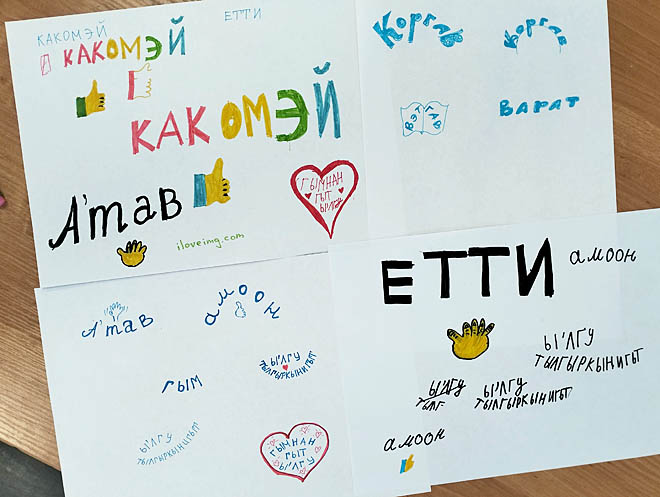 КАКОМЭЙ
ЕТТИ
КАКОМЭЙ
КАКОМЭЙ
А'тав
iloveimg.com
ГЫМНАН
ГЫТ
Ы'ЛГУ
Коргав
Коргав
ВЭТГАВ
ВАРАТ
А'тав
амоон
ГЫМ
Ы'ЛГУ
ТЫЛГЫРКЫНИГЫТ
Ы'ЛГУ
ТЫЛГЫРКЫНИГЫТ
ГЫМНАН
ГЫТ
Ы'ЛГУ
ЕТТИ
амоон
Ы'ЛГУ
ТЫЛГЫРКЫНИГЫТ
Ы'ЛГУ
ТЫЛГ
Ы'ЛГУ
ТЫЛГЫРКЫНИГЫТ
амоон